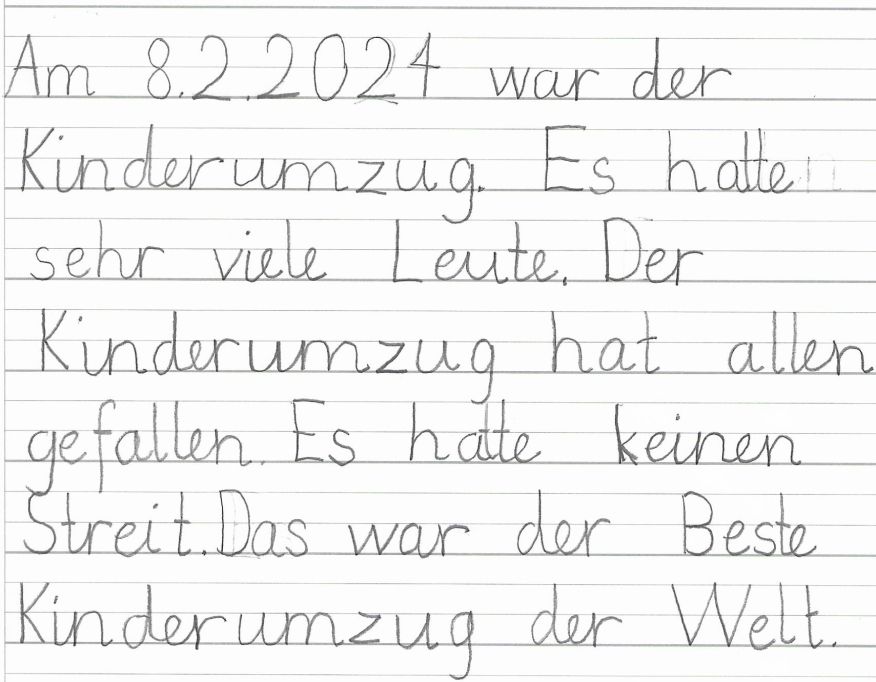 Am 8.2.2024 war der
Kinderumzug. Es hatte
sehr viele Leute. Der
Kinderumzug hat allen
gefallen. Es hatte keinen
Streit. Das war der Beste
Kinderumzug der Welt.